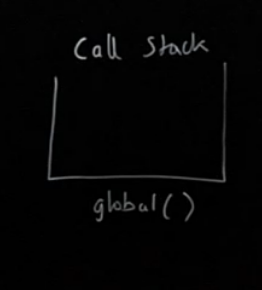 Call Stack
global()